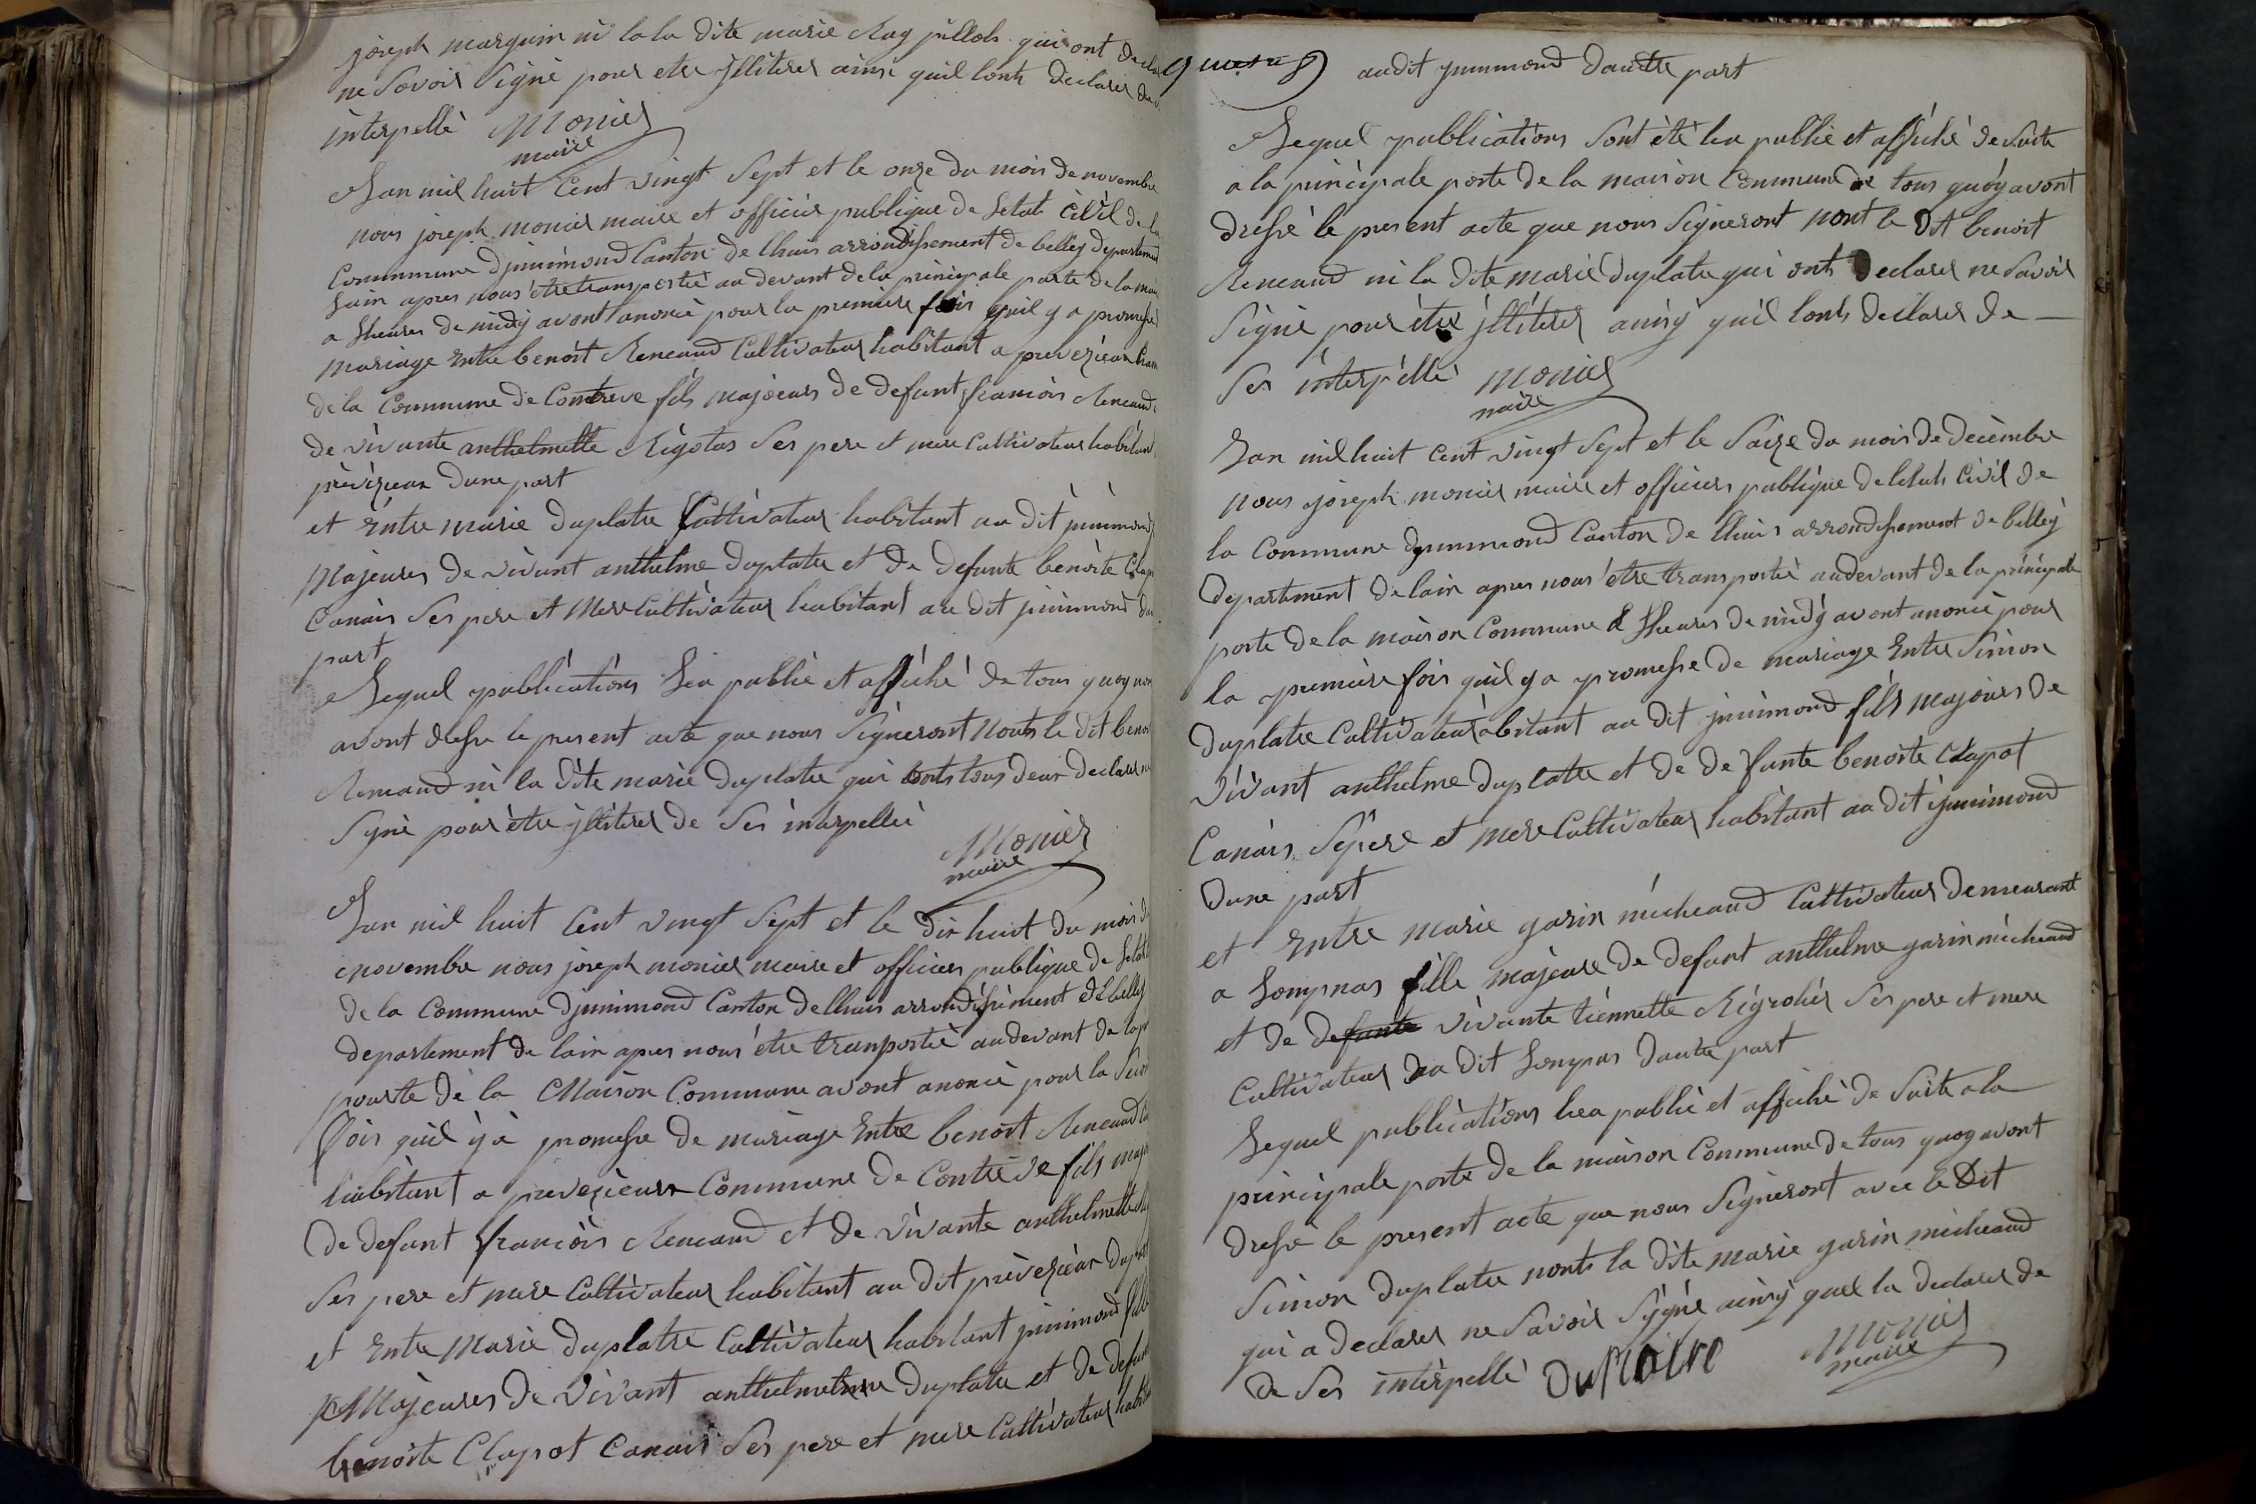 joseph marguin ni la la dite marie Rag jullole qui ont decla
ne Savoir Signé pour etre jlliterer ainsi quil lonts declarer de
interpellé Monier
maire
Lan mil huit Cent vingt Sept et le onze du mois de novembre
nous joseph monier maire et officier publique de Letat Civil de la
Commmune djnnimond Canton de lhuis arrondissement de belley departement
Lain apres nous être transportté au devant de la prinsipale porte de la mai
a 8 heures de midÿ avont anoncé pour la premiere fois quil y a promesse
mariage Entre benoit Reneaud Cultivateur habitant a preverieux
de la Commune de Contreve fils majeurs de defunt francois Reneaud
de vivante anthelmette Rigolas Ses pere et mere Cultivateur habitant
prévérieux dune part
et Entre marie duplatre Cultivateur habitant au dit jnnimond
Majeures de vivant anthelme duplatre et de defunte benoite Clap
Canais Ses pere et Mere Cultivateur habitant au dit jnnimond
part
Lequel publications Lea publié et affiché de tous quoy nou
avont dresse le present acte que nous Signeront nonts le dit benoi
Reneaud ni la dite marie duplatre qui onts tous deux declarer ne
Syné pour être jlliterer de Ses interpellée
Monier
maire
Lan mil huit Cent vingt Sept et le dix huit du mois de
novembre nous joseph monier maire et officier publique de Letat
de la Commune djnnimond Canton de lhuis arrondissement de belley
departement de lain apres nous être transporté audevant de la p
pourte de la Maison Commune avont anoncé pour la Seco
fois quil y à promesse de mariage Entre benoit Reneaud
habitant a preverieux Commune de Contreve fils maj
de defunt francois Reneaud et de vivante anthelmette
Ses pere et mere Cultivateur habitant au dit prèverieux
et Entre Marie duplatre Cultivateur habitant jnnimond fille
Majeures de vivant anthelme duplatre et de defun
benoite Clapot Canais Ses pere et mere Cultivateur habit
au dit jnnimond dautre part
Lequel publications Sont été lea publié et affiché de Suite
a la principale porte de la maison Commune de tous quoy avont
dressé le present acte que nous Signeront nont le dit benoit
Reneaud ni la dite marie duplatre qui onts declarer ne Savoir
Signé pour être jlliterer ainsy quil lonts declarer de
Ses interpéllé Monier
maire
Lan mil huit Cent vingt Sept et le Saize du mois de decembre
nous joseph monier maire et officier publique de letats Civil de
la Commune djnnimond Canton de lhuis arrondissement de belley
departement de lain apres nous être transportté audevant de la principale
porte de la maison Commune a 8 heures de midÿ avont anoncé pour
la premiere fois quil y a promesse de mariage Entre Simon
duplatre Cultivateur abitant au dit jnnimond fils majeurs de
vivant anthelme duplatre et de defunte benoite Clapot
Canais Sépere et mere Cultivateur habitant au dit jnnimond
dune part
et Entre marie garin micheaud Cultivateur demeurant
a Lompnas fille majeure de defunt anthelme garin micheaud
et de defunte vivante tiennette Ses pere et mere
Cultivateur au dit Lompnas dautre part
Lequel publications lea publié et affiché de Suite a la
principale porte de la maison Commune de tous quoy avont
dressé le present acte que nous Signeront avec le dit
Simon duplatre nonts la dite marie garin micheaud
qui a declarer ne Savoir Sÿgné ainsy quel la declarer de
de Ses interpellé Duplatre Monier
maire